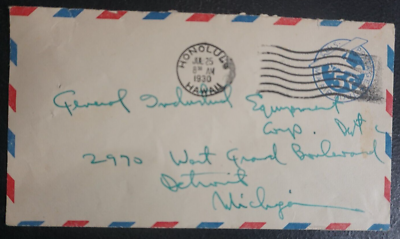 HONOLULU
JUL 25
1930
HAWAII
5¢
General Industrial Equipment
Corp.
2970 West Grand Boulevard
Detroit
Michigan